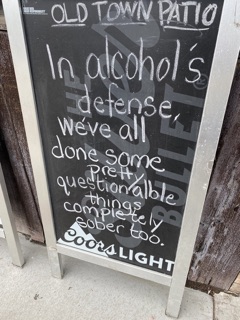 OLD TOWN PATIO
In alcohol's
defense,
we've all
done some
pretty
questionable
things
completely
sober too.
THE
SILVER
BULLET
Coors LIGHT